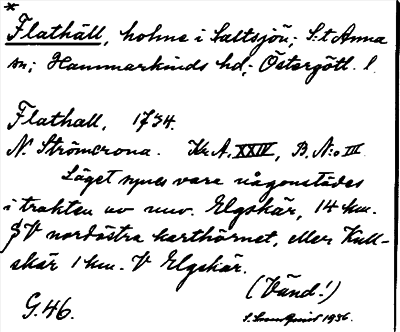 *
Flathäll, holme i Saltsjön; S:t Anna
sn; Hammarkinds hd; Östergötl. l.
Flathall, 1734.
N. Strömcrona. Kr.A. XXIV, B. N:o III
Läget synes vara någonstädes
i trakten av nuv. Elgskär, 14 km.
SV nordöstra karthörnet, eller Kull-
skär 1 km. V Elgskär.
(Vänd!)
G. 46.
1936.